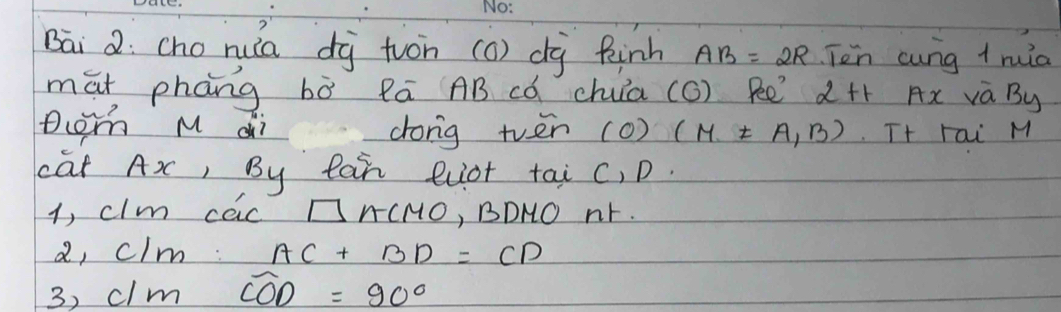 No:
Bài 2: Cho nửa đg tròn (O) đg kính AB = 2R. Trên cùng 1 nửa
mặt phẳng bờ là AB có chứa (O) kẻ 2 tt Ax và By
Điểm M di động trên (O) (M ≠ A, B). Tt tại M
cắt Ax, By lần lượt tại C, D.
1, c/m các □ ACMO, BDMO nt.
2, c/m : AC + BD = CD
3, c/m COD = 90°